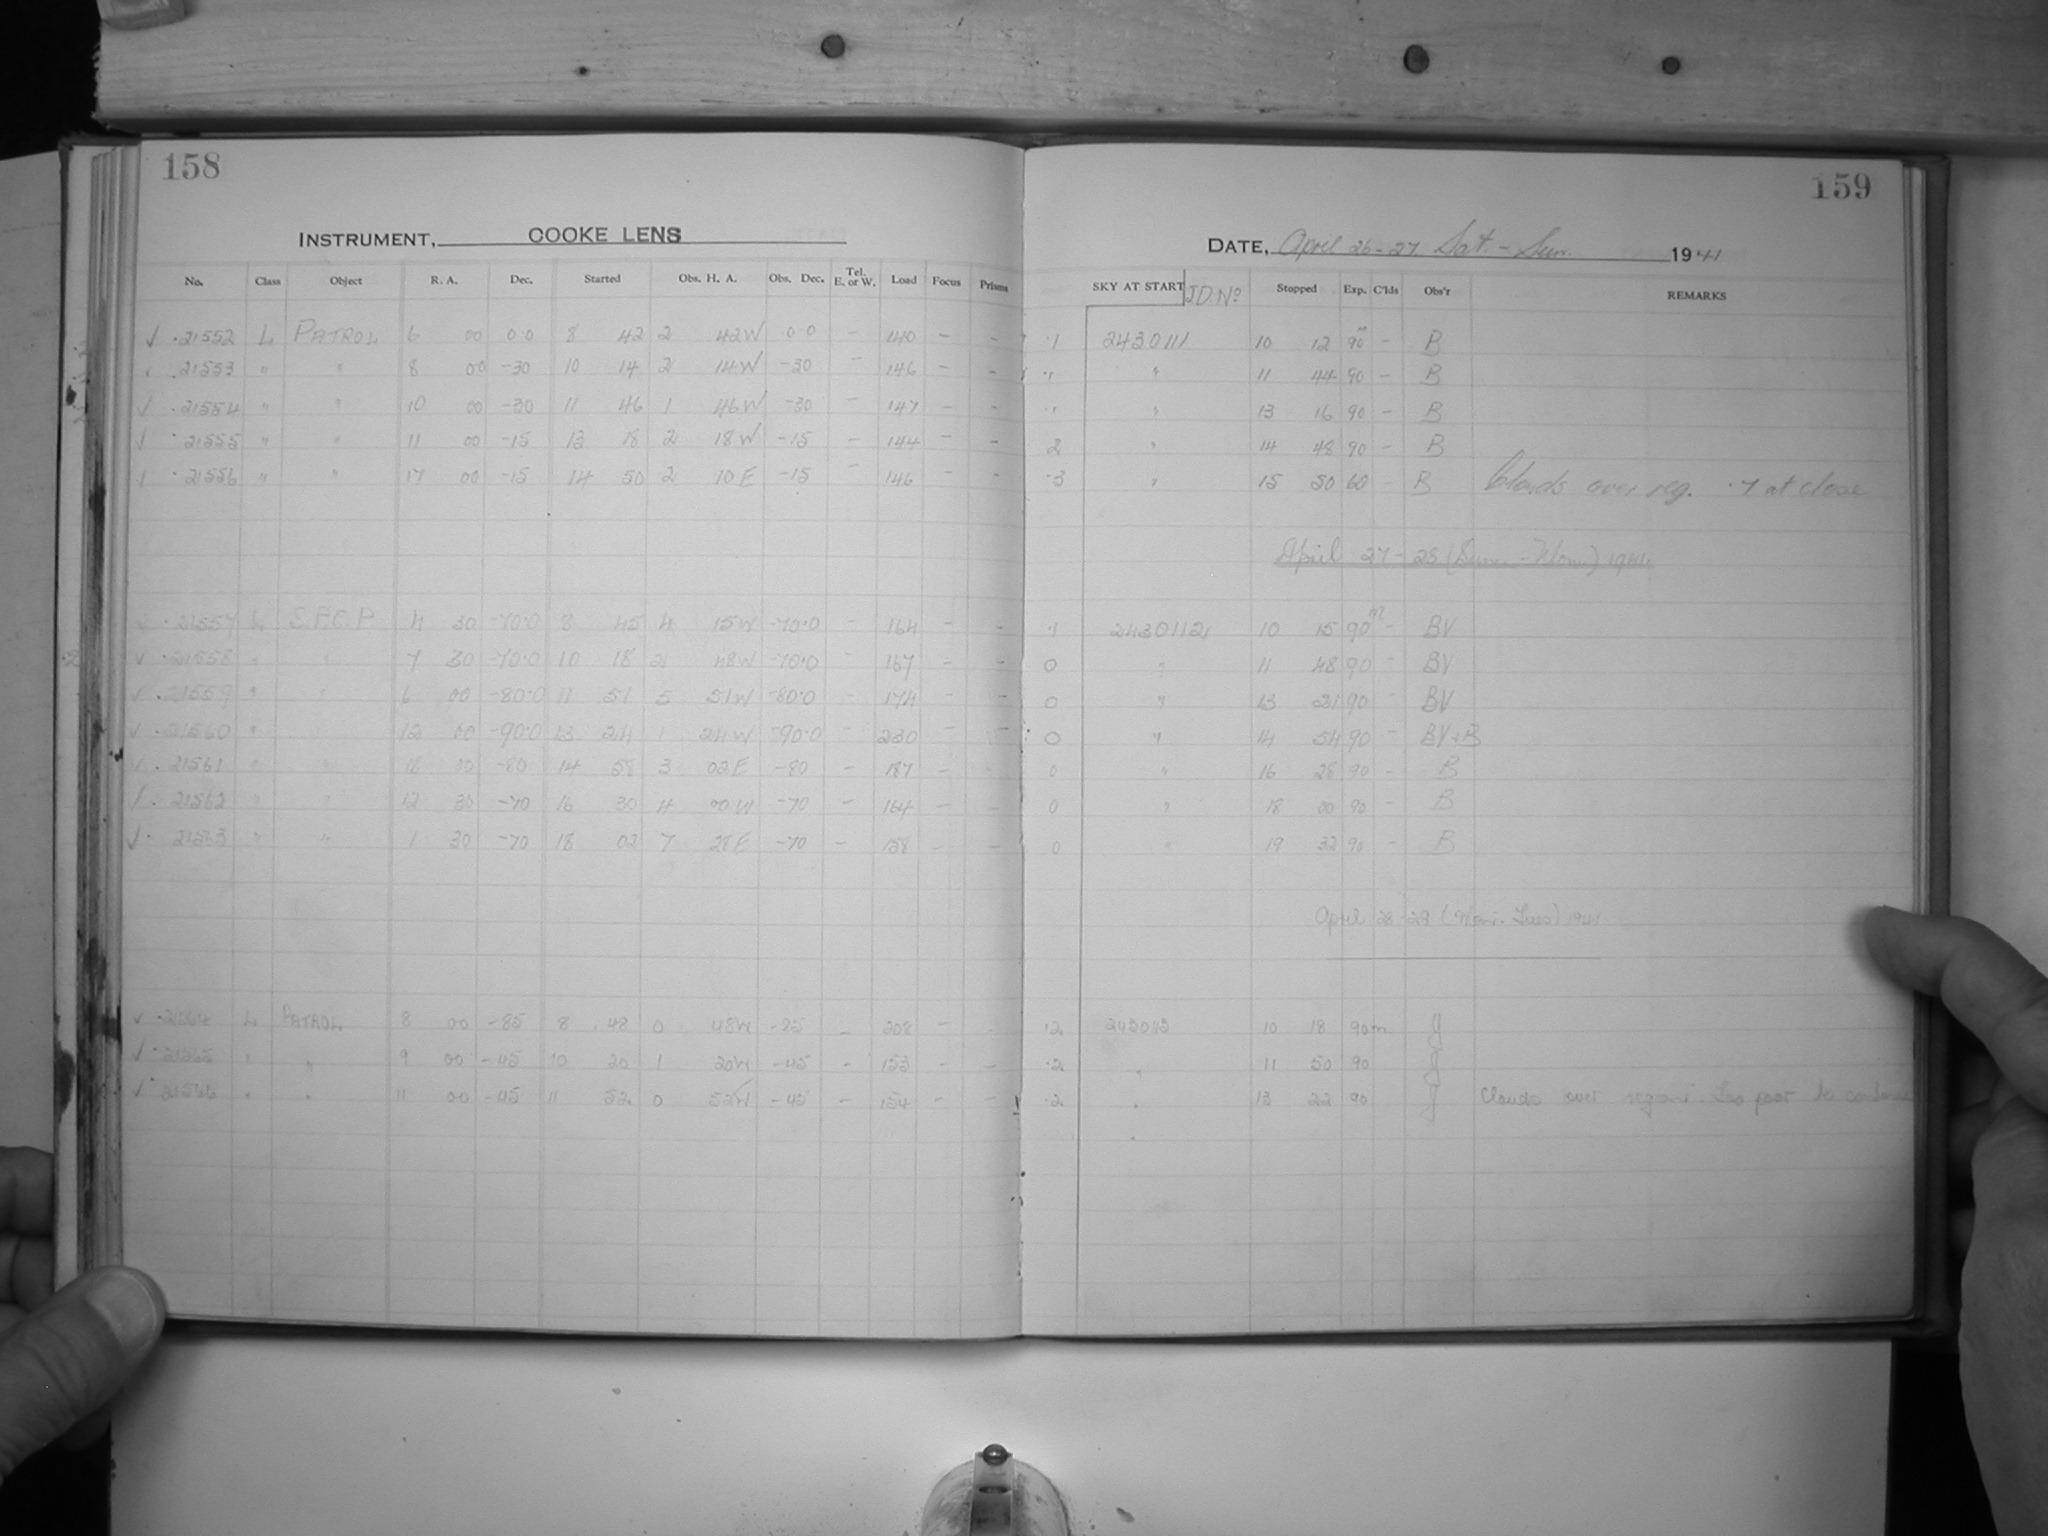 158
INSTRUMENT, COOKE LENS
No. Class Object R. A. Dec. Started Obs. H. A. Obs. Dec. Tel. E. or W. Load Focus Prisms
√ ·21552 L PATROL 6 00 0·0 8 42 2 42W 0·0 - 140 - -
·21553 " " 8 00 -30 10 14 2 14W -30 - 146 - -
√ ·21554 " " 10 00 -30 11 46 1 46W -30 - 147 - -
√ ·21555 " " 11 00 -15 13 18 2 18W -15 - 144 - -
·21556 " " 17 00 -15 14 50 2 10E -15 - 146 - -
√ ·21557 L S.P.C.P 4 30 -70·0 8 45 4 15W -70·0 - 164 - -
√ ·21558 " " 7 30 -70·0 10 18 2 48W -70·0 - 167 - -
√ ·21559 " " 6 00 -80·0 11 51 5 51W -80·0 - 174 - -
√ ·21560 " 12 00 -90·0 13 24 1 24W -90·0 - 230 - -
√ ·21561 " 18 00 -80 14 58 3 02E -80 - 187 - -
√ ·21562 " " 12 30 -70 16 30 4 00W -70 - 164 - -
√ ·21563 " " 1 30 -70 18 02 7 28E -70 - 158 - -
√ ·21564 L PATROL 8 00 -85 8 48 0 48W -85 - 208 - -
√ ·21565 " " 9 00 -45 10 20 1 20W -45 - 153 - -
√ ·21566 " " 11 00 -45 11 52 0 52W -45 - 154 - -
159
DATE, April 26-27 Sat - Sun. 1941
SKY AT START J.D. No Stopped Exp. C'lds Obs'r REMARKS
·1 2430111 10 12 90m - B
·1 " 11 44 90 - B
·1 " 13 16 90 - B
2 " 14 48 90 - B
·3 " 15 50 60 - B Clouds over reg. ·7 at close
April 27-28 (Sun - Mon) 1941.
·1 2430112 10 15 90m - BV
0 " 11 48 90 - BV
0 " 13 21 90 - BV
0 " 14 54 90 - BV+B
0 " 16 28 90 - B
0 " 18 00 90 - B
0 " 19 32 90 - B
April 28-29 (Mon. - Tues) 1941
·2 10 18 90m J
·2 " 11 50 90 J
·2 " 13 22 90 J Clouds over region. Too poor to continue